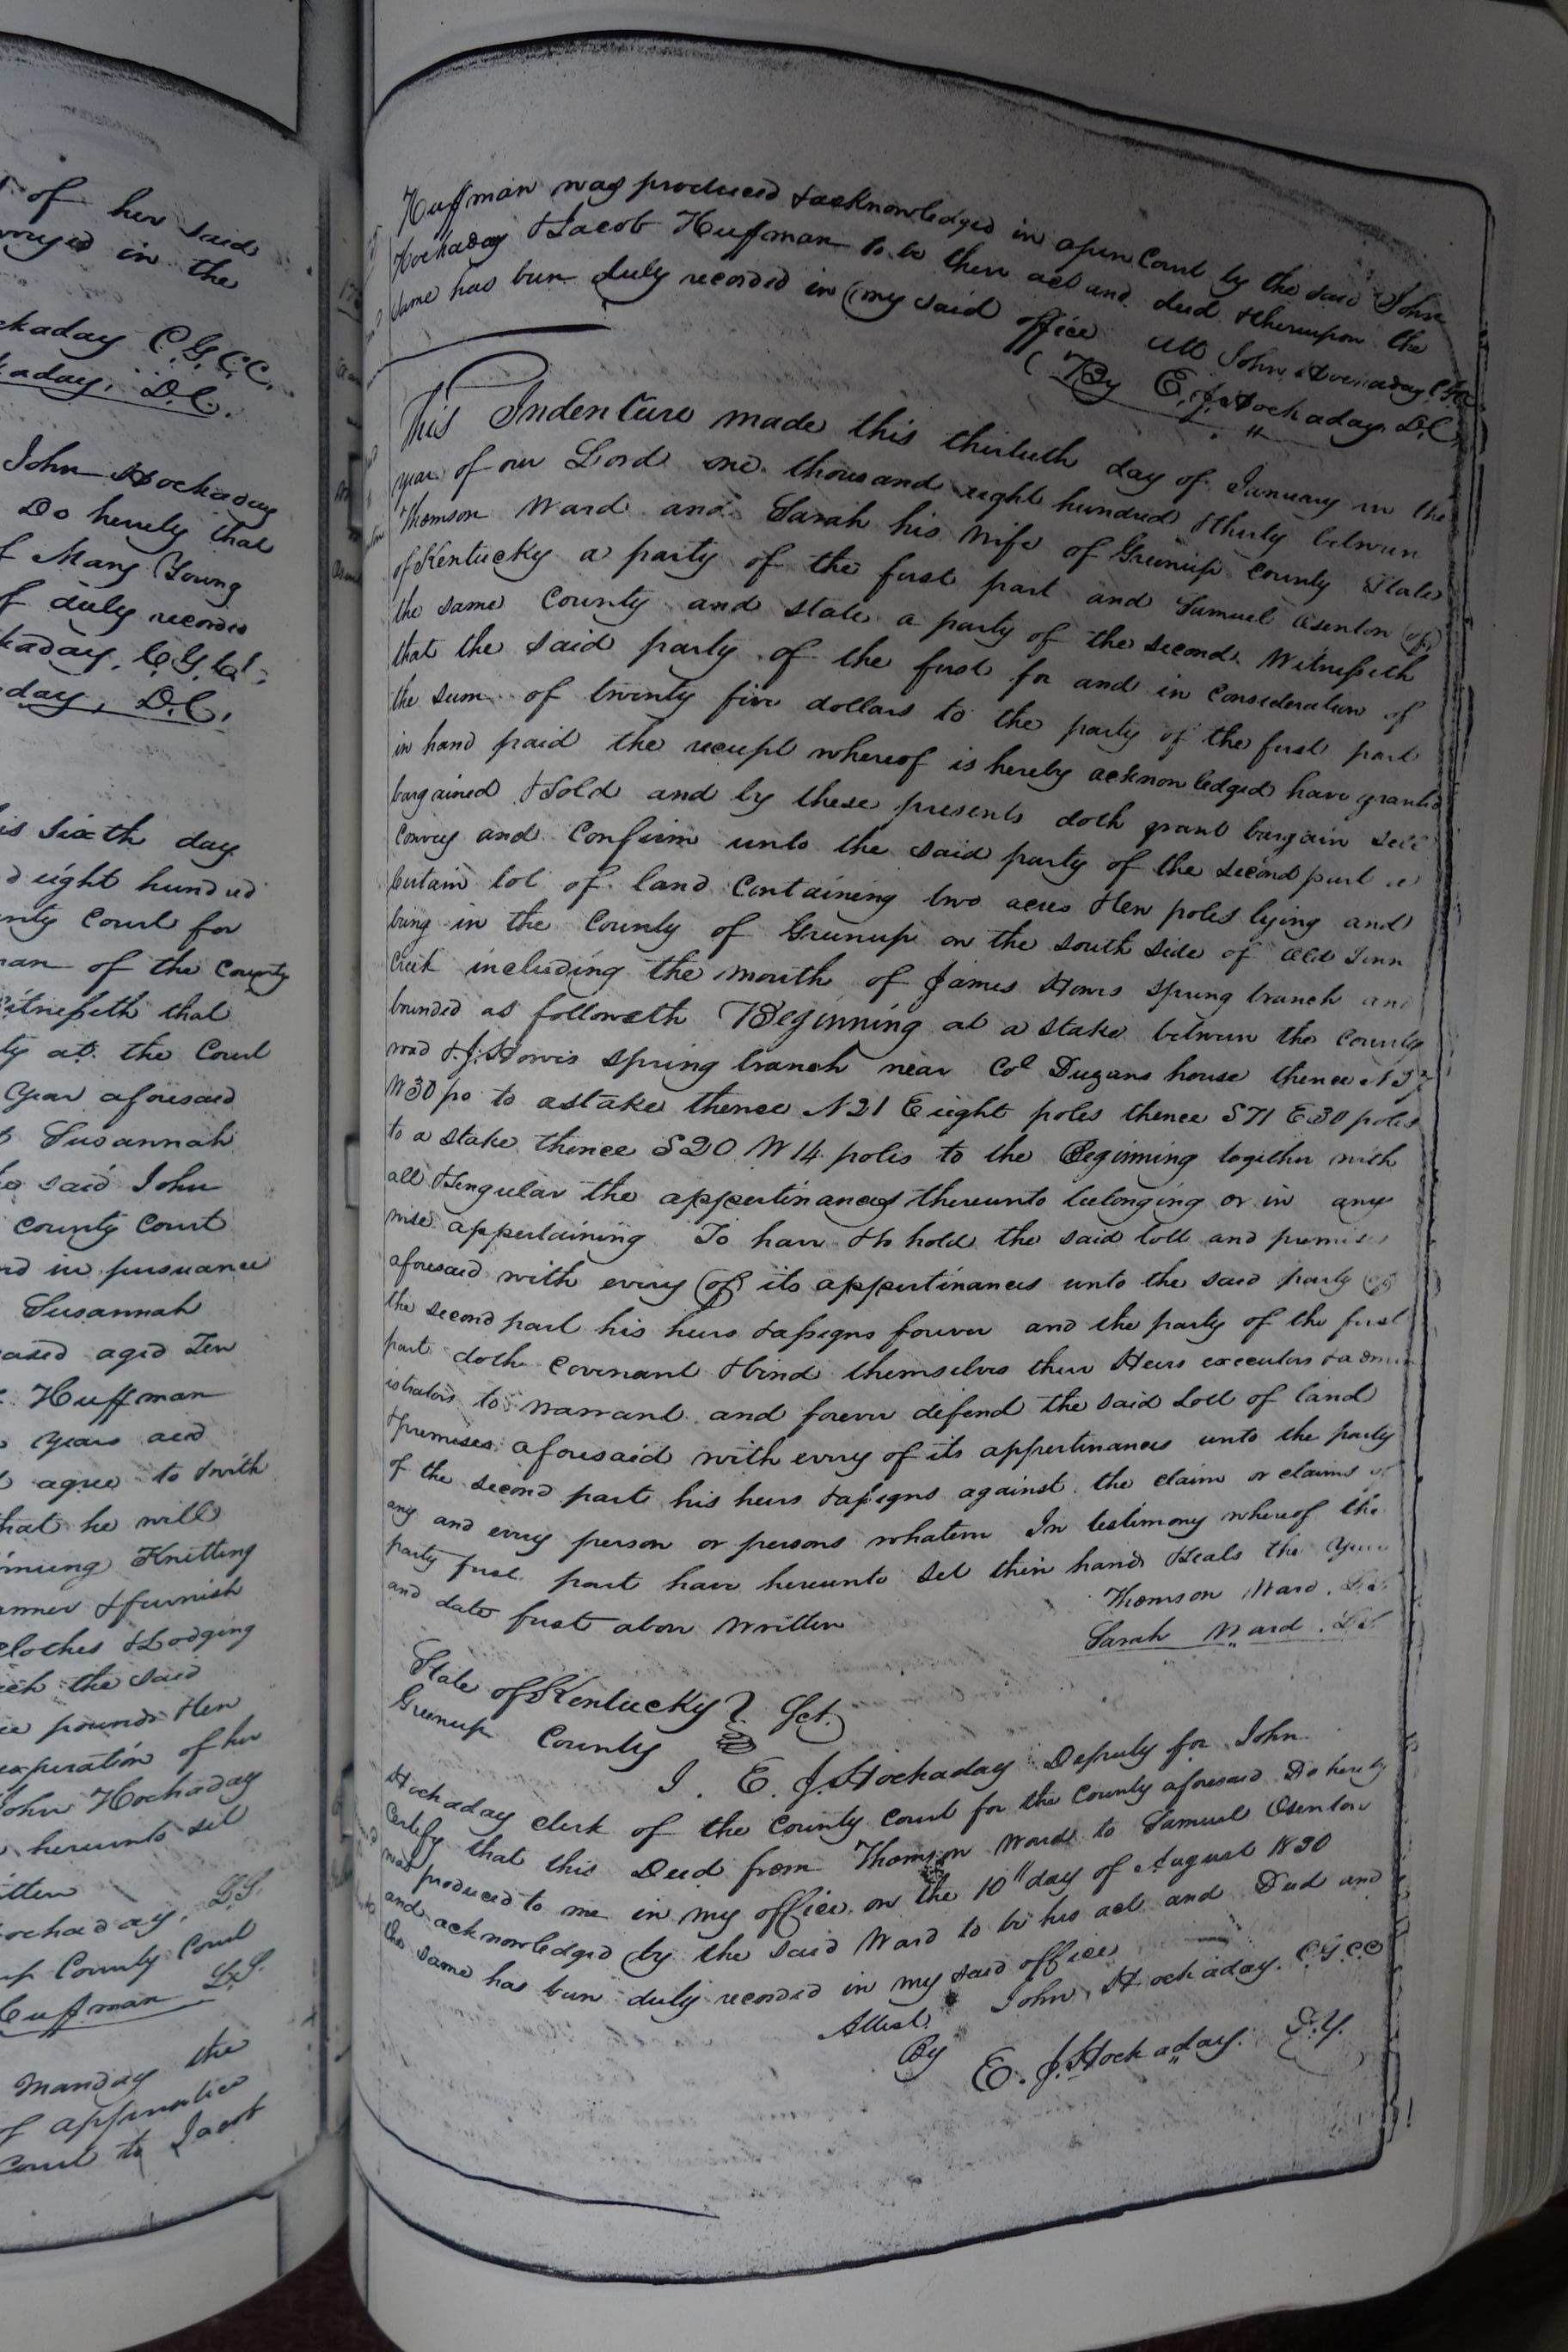 of her said
in the
ckaday C.G.C.C.
kaday, D.C.
John Hockaday
Do hereby that
f Mary Young
f duly recorded
kaday, C.G.C.
day, D.C.
is Sixth day
d eight hundred
nty Court for
man of the County
itnesseth that
ty at the Court
Year aforesaid
Susannah
said John
County Court
nd in pursuance
Susannah
ased aged Ten
Huffman
Years and
agree to & with
that he will
Knitting
anner & furnish
clothes & Lodging
ich the Said
pounds & ten
expiration of her
John Hockaday
hereunto set
itten
ockaday, L.S.
up County Court
Huffman L.S.
Monday the
of apprentice
Court to Jacob
Huffman was produced & acknowledged in open Court by the said John
Hockaday & Jacob Huffman to be their act and deed & thereupon the
same has been duly recorded in my said office Att John Hockaday C.G.C.C.
By E. J. Hockaday D.C.
This Indenture made this thirtieth day of January in the
year of our Lord one thousand eight hundred & thirty between
Thomson Ward and Sarah his Wife of Greenup County State
of Kentucky a party of the first part and Samuel Osenton of
the same County and state a party of the second Witnesseth
that the said party of the first for and in consideration of
the sum of twenty five dollars to the party of the first part
in hand paid the receipt whereof is hereby acknowledged have granted
bargained & Sold and by these presents doth grant bargain sell
Convey and Confirm unto the said party of the second part a
Certain lot of land Containing two acres & ten poles lying and
being in the County of Greenup on the south side of Old Town
Creek including the mouth of James Howes spring branch and
bounded as followeth Beginning at a stake between the County
road & J. Howes spring branch near Col Dugans house thence N
W 30 po to a stake thence N 21 E eight poles thence S 71 E 30 poles
to a stake thence S 20 W 14 poles to the Beginning together with
all & Singular the appertinances thereunto belonging or in any
wise appertaining To have & to hold the said lott and premises
aforesaid with every of its appertinances unto the said party of
the second part his heirs & assigns forever and the party of the first
part doth Covenant & bind themselves their Heirs executors & admin
istrators to warrant and forever defend the said Lott of land
& premises aforesaid with every of its appertinances unto the party
of the second part his heirs & assigns against the claim or claims of
any and every person or persons whatever In testimony whereof the
party first part have hereunto Set their hands & Seals the Year
and date first above Written
Thomson Ward L.S.
Sarah Ward L.S.
State of Kentucky
Greenup County Sct.
I. E. J. Hockaday Deputy for John
Hockaday clerk of the County Court for the County aforesaid Do hereby
Certify that this Deed from Thomson Ward to Samuel Osenton
was produced to me in my office on the 10" day of August 1830
and acknowledged by the said Ward to be his act and Deed and
the same has been duly recorded in my said office
Attest John Hockaday. C.G.C.C
By E. J. Hockaday. D.Y.